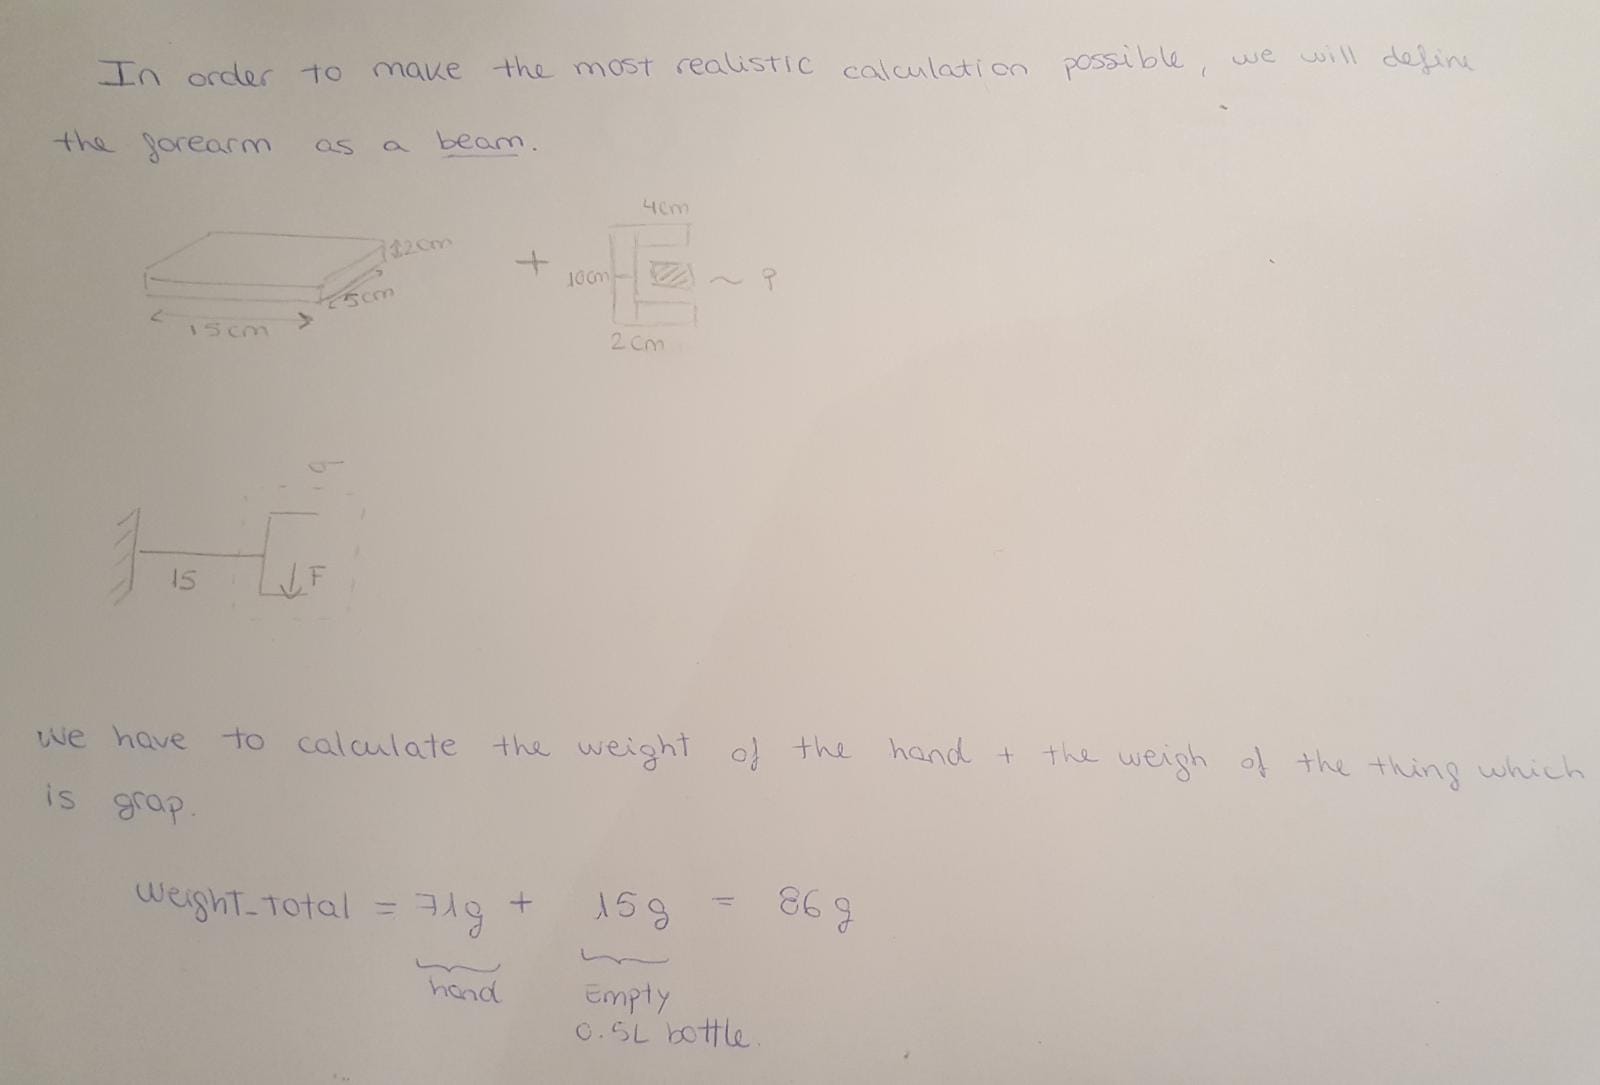 In order to make the most realistic calculation possible, we will define
the forearm as a beam.
4cm
2cm
10cm
?
5cm
15cm
2cm
σ
15
F
we have to calculate the weight of the hand + the weigh of the thing which
is grap.
Weight_total = 71g + 15g = 86g
hand Empty
0.5L bottle.